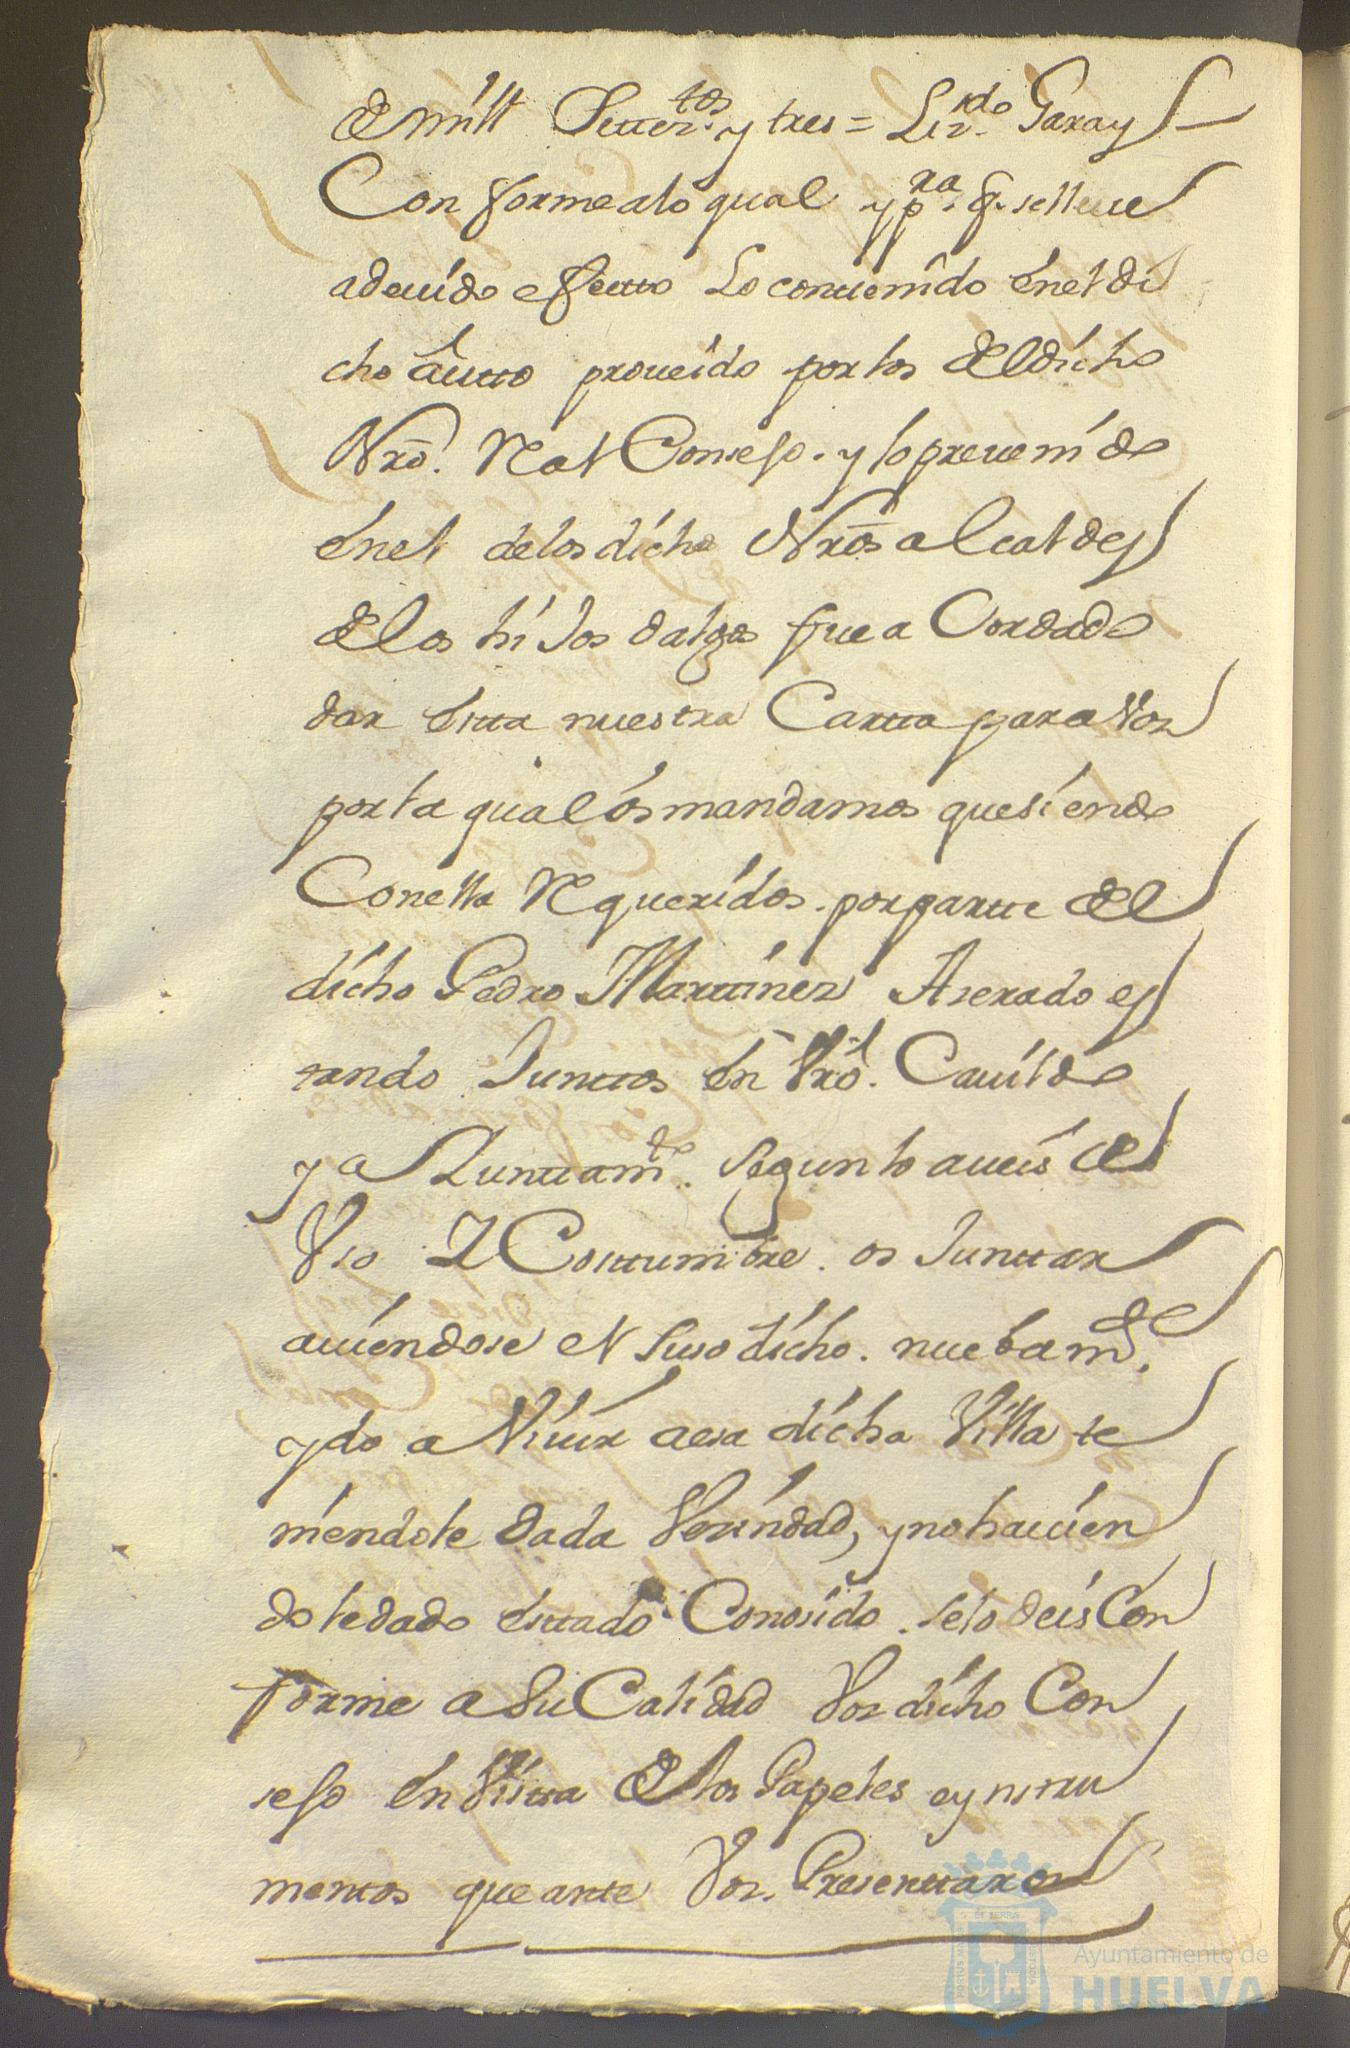 de mill Settez.tos y tres = Liz.do Garay
Conforme alo qual y p.ra q. se lleue
adeuido efectto Lo conttenido en el di
cho auto proueido por los del dicho
Nro. Real Consejo. y lo preuenido
en el de los dichos Nros alcaldes
de los hijos dalgo fue a Cordado
dar estta nuestra Cartta para Vos
por la qual os mandamos que siendo
Con ella Requeridos. por partte del
dicho Pedro Marttinez Aserado es
tando Juntos en Vro. Cauildo
y a Junttam.to segun lo aueis de
Vso Y Costtumbre. os Junttar
auiendose el suso dicho. nuebam.te
ydo a Viuir a esa dicha Villa te
niendole dada Vezindad, y no hauien
dole dado esttado Conosido. se lo deis Con
forme a su Calidad Vos dicho Con
sejo en Vistta de los Papeles e ynstru
menttos que ante Vos. Presenttare
Ayuntamiento de
HUELVA